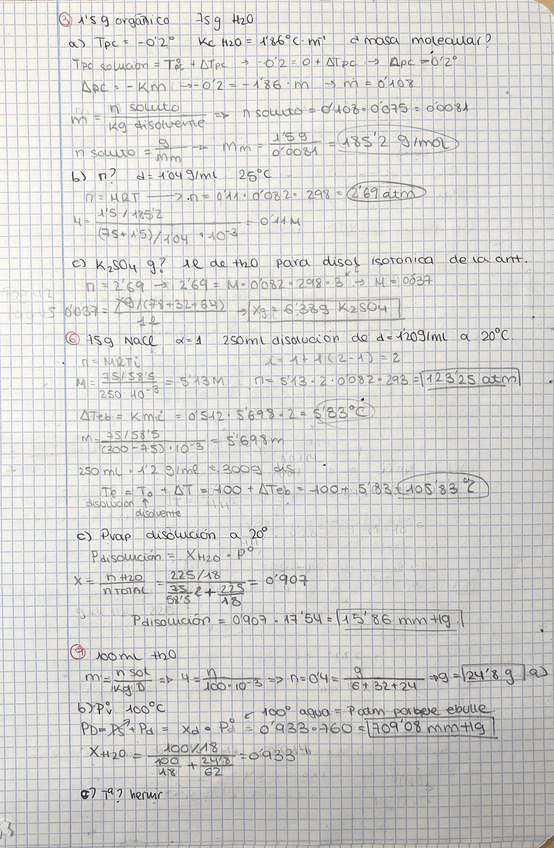 ③ 1'5 g orgánico 75g H2O
a) Tpc = -0'2° Kc H2O = 1'86°C·m⁻¹ d masa molecular?
Tpc solución = T°pc + ΔTpc → -0'2 = 0 + ΔTpc → Δpc = -0'2°
Δpc = -Km → -0'2 = -1'86·m → m = 0'108
m = n soluto / kg disolvente ⇒ n soluto = 0'108·0'075 = 0'0081
n soluto = g / mm → Mm = 1'5g / 0'0081 = 185'2 g/mol
b) π? d = 1'04 g/ml 25°C
π = MRT → π = 0'11·0'082·298 = 2'69 atm
M = 1'5/185'2 / (75+1'5)/1'04 · 10⁻³ = 0'11M
c) K2SO4 g? 1l de H2O para disol isotonica de la ant.
π = 2'69 → 2'69 = M·0'082·298·3 → M = 0'037
0'037 = Xg/(78+32+64) / 1l → Xg = 6'38g K2SO4
⑥ 75g NaCl α=1 250ml disolución de d=1'20g/ml a 20°C.
π = MRTi i = 1+1(2-1) = 2
M = 75/58'5 / 250·10⁻³ = 5'13M π = 5'13·2·0'082·293 = 123'25 atm
ΔTeb = Kmi = 0'512·5'698·2 = 5'83°C
m = 75/58'5 / (300-75)·10⁻³ = 5'698m
250ml · 1'2 g/ml = 300g dis.
Te = To + ΔT = 100 + ΔTeb = 100 + 5'83 = 105'83°C
disolución disolvente
c) Pvap disolución a 20°
Pdisolución = XH2O · P°
X = nH2O / nTOTAL = 225/18 / 75/58'5 + 225/18 = 0'907
Pdisolución = 0'907·17'54 = 15'86 mmHg
100ml H2O
m = n sol / kg D ⇒ 4 = n / 100·10⁻³ ⇒ n = 0'4 = g / 6+32+24 → g = 24'8 g a)
b) Pv 100°C
100° agua = Patm porque ebulle
PD = Ps + Pd = Xd · P°d = 0'933·760 = 709'08 mmHg
XH2O = 100/18 / 100/18 + 24'8/62 = 0'933
c) Tª? hervir